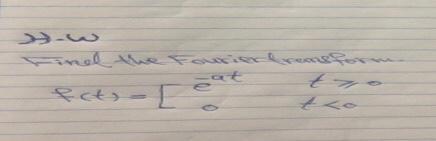 Find the Fourier transform.
f(t) = [ e^-at t ≥ 0
0 t < 0